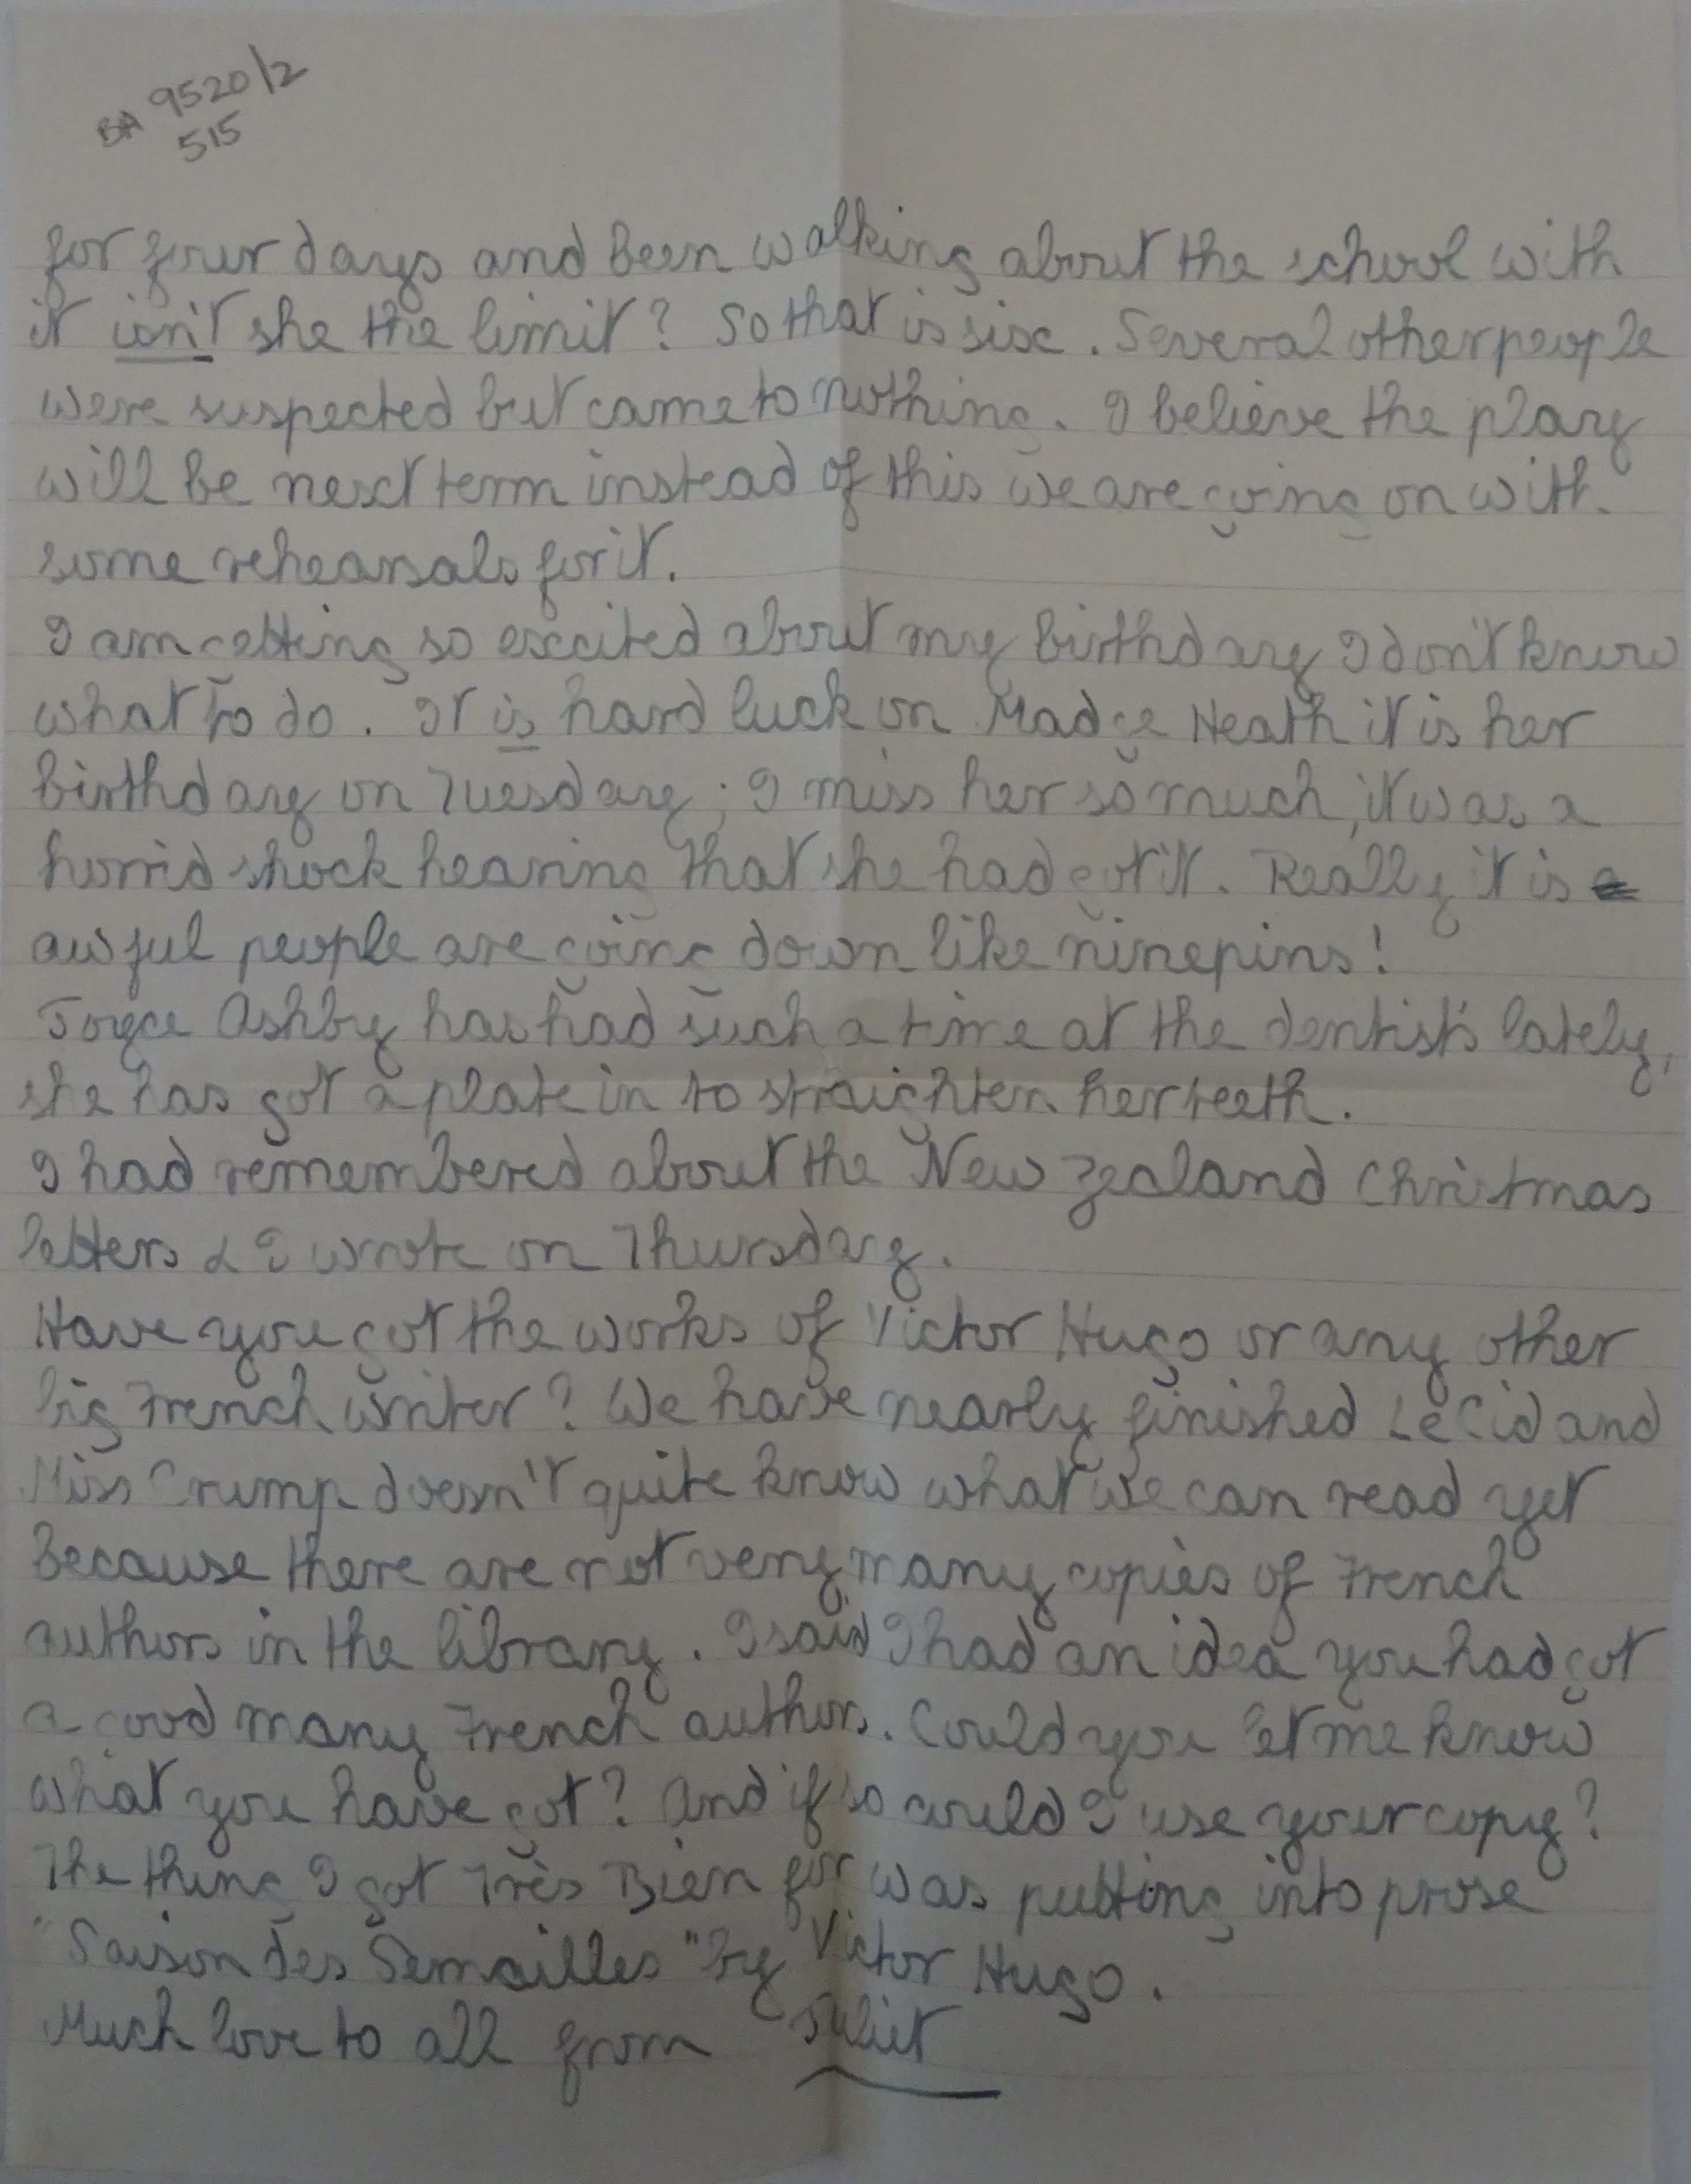 BA 9520/2
515
for four days and been walking about the school with
it isn't she the limit? So that is six. Several other people
were suspected but came to nothing. I believe the play
will be next term instead of this we are going on with
some rehearsals for it.
I am getting so excited about my birthday I don't know
what to do. It is hard luck on Madge Heath it is her
birthday on Tuesday; I miss her so much, it was a
horrid shock hearing that she had got it. Really it is
awful people are going down like ninepins!
Joyce Ashby has had such a time at the dentist's lately,
she has got a plate in to straighten her teeth.
I had remembered about the New Zealand Christmas
letters & I wrote on Thursday.
Have you got the works of Victor Hugo or any other
big French writer? We have nearly finished Le Cid and
Miss Crump doesn't quite know what we can read yet
because there are not very many copies of French
authors in the library. I said I had an idea you had got
a good many French authors. Could you let me know
what you have got? And if so could I use your copy?
The thing I got Très Bien for was putting into prose
"Saison des Semailles" by Victor Hugo.
Much love to all from Juliet